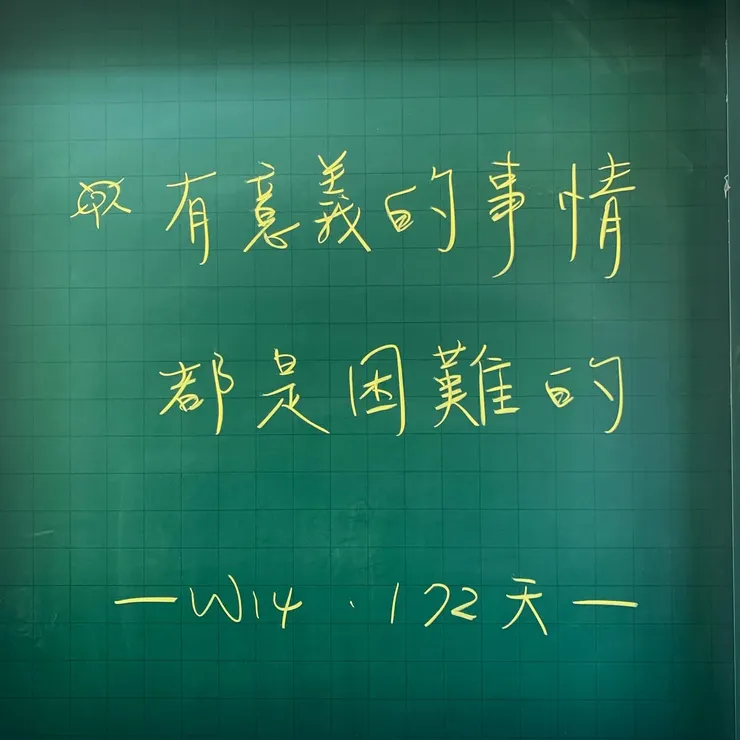 有意義的事情
都是困難的
—W14.172天—